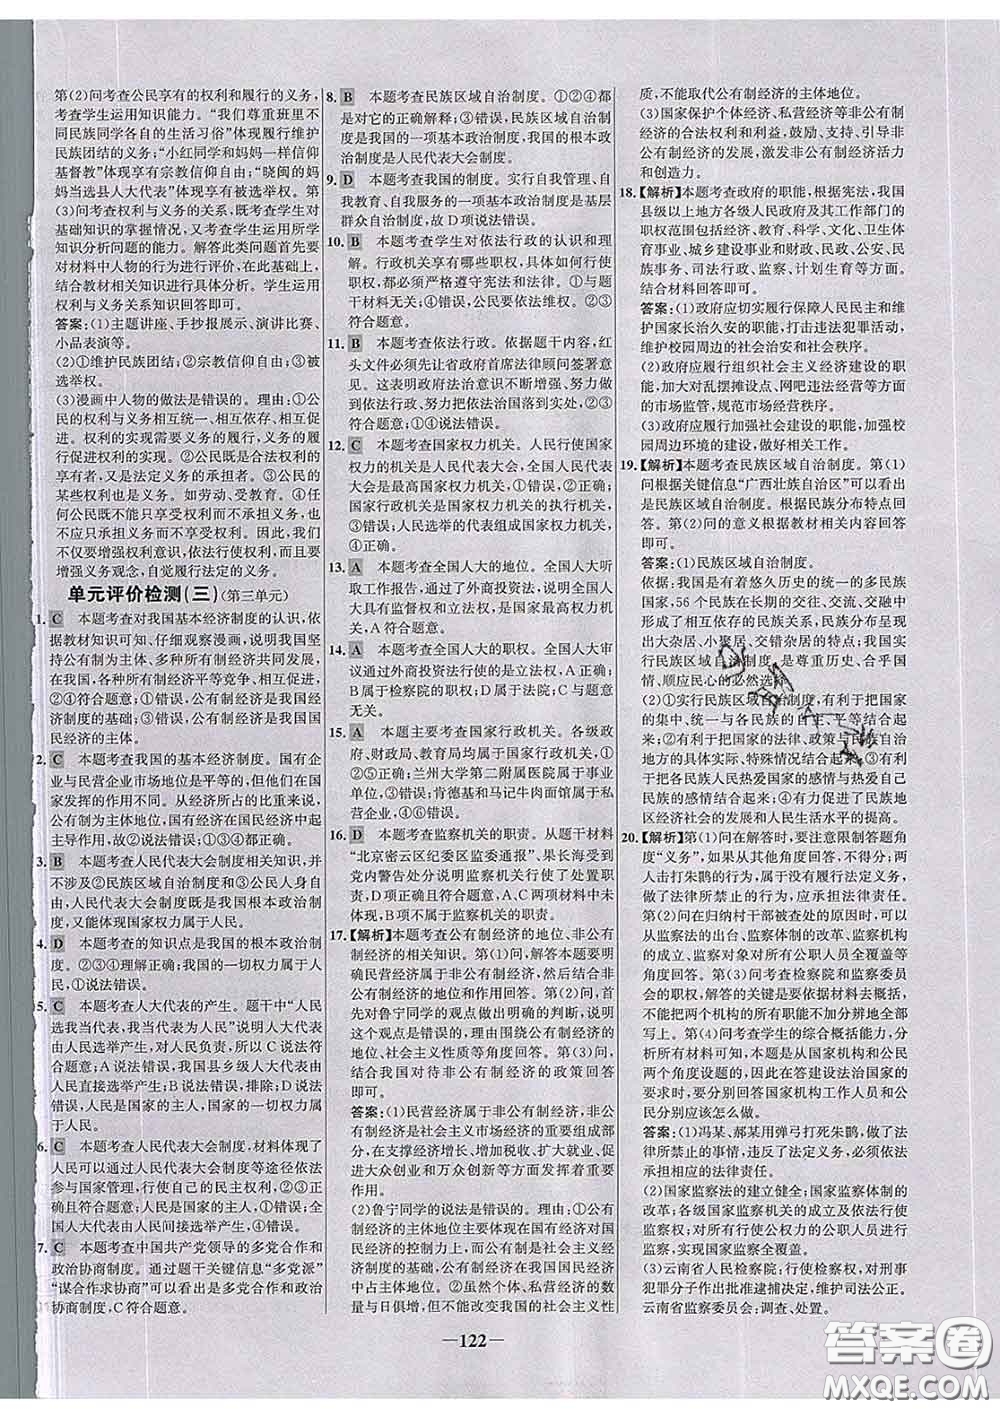 第(2)问考查公民享有的权利和履行的义务,
考查学生运用知识能力。“我们尊重班里不
同民族同学各自的生活习俗”体现履行维护
民族团结的义务;“小红同学和妈妈一样信仰
基督教”体现享有宗教信仰自由;“晓闽的妈
妈当选县人大代表”体现享有被选举权。第
(3)问考查权利与义务的关系,既考查学生基
础知识的掌握情况,又考查学生运用所学
知识分析问题的能力。解答此类问题首先要
对材料中人物的行为进行评价,在此基础上,
结合教材相关知识进行具体分析。学生运用
权利与义务关系知识回答即可。
答案:(1)主题讲座、手抄报展示、演讲比赛、
小品表演等。
(2)①维护民族团结;②宗教信仰自由;③被
选举权。
(3)漫画中人物的做法是错误的。理由:①公
民的权利与义务相互统一、相互依存、相互促
进。权利的实现需要义务的履行,义务的履行
促进权利的实现。②公民既是合法权利的
享有者,又是法定义务的承担者。③公民的
某些权利也是义务。如劳动、受教育。④任
何公民既不能只享受权利而不承担义务,也
不应只承担义务而不享受权利。因此,我们
不仅要增强权利意识,依法行使权利,而且要
增强义务观念,自觉履行法定的义务。
单元评价检测(三)(第三单元)
1. C 本题考查对我国基本经济制度的认识,
依据教材知识可知、仔细观察漫画,说明我国坚
持公有制为主体、多种所有制经济共同发展、
各种所有制经济平等竞争、相互促进,
②④符合题意;①错误,公有制经济是我国
经济制度的基础;③错误,公有制是我国国
民经济的主体。
2. C 本题考查我国的基本经济制度。国有企
业与民营企业市场地位是平等的,但它们在国
家发挥的作用不同。从经济所占的比重来看,
公有制为主体地位,国有经济在国民经济中起
主导作用,故②说法错误;①③④都正确。
3. B 本题考查人民代表大会制度相关知识,并
不涉及②民族区域自治制度和③公民人身自
由,人民代表大会制度既是我国根本政治制
度,又能体现国家权力属于人民。
4. D 本题考查的知识点是我国的根本政治制
度。②③④理解正确;我国的一切权力属于人
民,①说法错误。
5. C 本题考查人大代表的产生。题干中“人民
选我当代表,我当代表为人民”说明人大代表
由人民选举产生,对人民负责,所以C说法符
合题意;A说法错误,我国县乡级人大代表由
人民直接选举产生;B说法错误,排除;D说法
错误,人民是国家的主人,国家的一切权力属
于人民。
6. C 本题考查人民代表大会制度,材料体现了
人民可以通过人民代表大会制度等途径依法
参与国家管理,行使自己的民主权利,②③正
确且符合题意;人民是国家的主人,①错误;全
国人大代表由人民间接选举产生,④错误。
7. C 本题考查中国共产党领导的多党合作和
政治协商制度。通过题干关键信息“多党派”
“谋合作求协商”可以看出是多党合作和政治
协商制度,C符合题意。
8. B 本题考查民族区域自治制度。①②④都
是对它的正确解释;③错误,民族区域自治制
度是我国的一项基本政治制度,我国的根本政
治制度是人民代表大会制度。
9. D 本题考查我国的制度。实行自我管理、自
我教育、自我服务的一项基本政治制度是基层
群众自治制度,故D项说法错误。
10. B 本题考查学生对依法行政的认识和理
解。行政机关享有哪些职权,具体如何行使
职权,都必须严格遵守宪法和法律。①与题
干材料无关;④错误,公民要依法维权。②③
符合题意。
11. B 本题考查依法行政。依据题干内容,红
头文件必须先让省政府首席法律顾问签署意
见。这表明政府法治意识不断增强、努力做
到依法行政、努力把依法治国落到实处,②③
符合题意;①④说法错误。
12. C 本题考查国家权力机关。人民行使国家
权力的机关是人民代表大会,全国人民代表
大会是最高国家权力机关,①错误,②正确;
国家行政机关是国家权力机关的执行机关,
③错误;人民选举的代表组成国家权力机关,
④正确。
13. A 本题考查全国人大的地位。全国人大
听取工作报告,通过了外商投资法,说明全国
人大具有监督权和立法权,是最高国家权力
机关,A符合题意。
14. A 本题考查全国人大的职权。全国人大审
议通过外商投资法行使的是立法权,A正确;
B属于检察院的职权;D属于法院;C与题意
无关。
15. A 本题主要考查国家行政机关。各级政
府、财政局、教育局均属于国家行政机关,①
②⑤正确;兰州大学第二附属医院属于事业
单位,③错误;肯德基和马记牛肉面馆属于私
营企业,④⑥错误。
16. D 本题考查监察机关的职责。从题干材料
“北京密云区纪委区监委通报”、果长海受到
党内警告处分说明监察机关行使了处置职责,
D项正确且符合题意,A、C两项材料中未
体现,B项不属于监察机关的职责。
17.【解析】本题考查公有制经济的地位、非公
有制经济的相关知识。第(1)问,解答本题要明
确民营经济属于非公有制经济,然后结合非
公有制经济的地位和作用回答。第(2)问,首
先对鲁宁同学的观点做出明确的判断,说明
这个观点是错误的,理由围绕公有制经济的
地位、社会主义性质等角度回答。第(3)问,
结合我国对待非公有制经济的政策回答
即可。
答案:(1)民营经济属于非公有制经济,非公
有制经济是社会主义市场经济的重要组成部
分,在支撑经济增长、增加税收、扩大就业、促
进大众创业和万众创新等方面发挥着重要
作用。
(2)鲁宁同学的说法是错误的。理由:①公有
制经济的主体地位主要体现在国有经济对国
民经济的控制力上,而公有制经济是社会主义经
济制度的基础,公有制经济在我国国民经济
中占主体地位。②虽然个体、私营经济的数
量与日俱增,但不能改变我国的社会主义性
质,不能取代公有制经济的主体地位。
(3)国家保护个体经济、私营经济等非公有制
经济的合法权利和利益,鼓励、支持、引导非
公有制经济的发展,激发非公有制经济活力
和创造力。
18.【解析】本题考查政府的职能,根据宪法,我国
县级以上地方各级人民政府及其工作部门的
职权范围包括经济、教育、科学、文化、卫生体
育事业、城乡建设事业和财政、民政、公安、民
族事务、司法行政、监察、计划生育等方面。
结合材料回答即可。
答案:(1)政府应切实履行保障人民民主和维
护国家长治久安的职能,打击违法犯罪活动,
维护校园周边的社会治安和社会秩序。
(2)政府应履行组织社会主义经济建设的职
能,加大对乱摆摊设点、网吧违法经营等方面
的市场监管,规范市场经营秩序。
(3)政府应履行加强社会建设的职能,加强校
园周边环境的建设,做好相关工作。
19.【解析】本题考查民族区域自治制度。第(1)
问根据关键信息“广西壮族自治区”可以看出
是民族区域自治制度。根据民族分布特点回
答。第(2)问的意义根据教材相关内容回答
即可。
答案:(1)民族区域自治制度。
依据:我国是有着悠久历史的统一的多民族
国家,56个民族在长期的交往、交流、交融中
形成了相互依存的民族关系,民族分布呈现
出大杂居、小聚居、交错杂居的特点;我国实
行民族区域自治制度,是尊重历史、合乎国
情、顺应民心的必然选择。
(2)①实行民族区域自治制度,有利于把国家
的集中、统一与各民族的自主、平等结合起
来;②有利于把国家的法律、政策与民族自治
地方的具体实际、特殊情况结合起来;③有利
于把各族人民热爱国家的感情与热爱自己
民族的感情结合起来;④有利于促进了民族地
区经济社会的发展和人民生活水平的提高。
20.【解析】第(1)问在解答时,要注意限制答题角
度“义务”,如果从其他角度回答,不得分;两
人击打朱鹮的行为,属于没有履行法定义务,
做了法律所禁止的行为,应承担法律责任。
第(2)问在归纳村干部被查处的原因时,可以
从监察法的出台、监察体制的改革、监察机构
的成立、监察对象对所有公职人员全覆盖等
角度回答。第(3)问考查检察院和监察委员
会的职权,解答的关键是要依据材料去概括,
不能把两个机构的所有职能不加分辨地全部
写上。第(4)问考查学生的综合概括能力,分
析所有材料可知,本题是从国家机构和公民
两个角度设问的,因此在答建设法治国家的
要求时,要分别回答国家机构工作人员和公
民分别应该怎么做。
答案:(1)冯某、郝某用弹弓打死朱鹮,做了法
律所禁止的事情,违反了法定义务,必须依法
承担相应的法律责任。
(2)国家监察法的建立健全;国家监察体制的
改革;各级国家监察机构的成立及依法行使
监察权;对所有行使公权力的公职人员进行
监察,实现国家监察全面覆盖。
(3)云南省人民检察院:行使检察权,对刑事
犯罪分子作出批准逮捕决定,维护司法公正。
云南省监察委员会:调查、处置。
—122—
答案圈
MXQE.COM